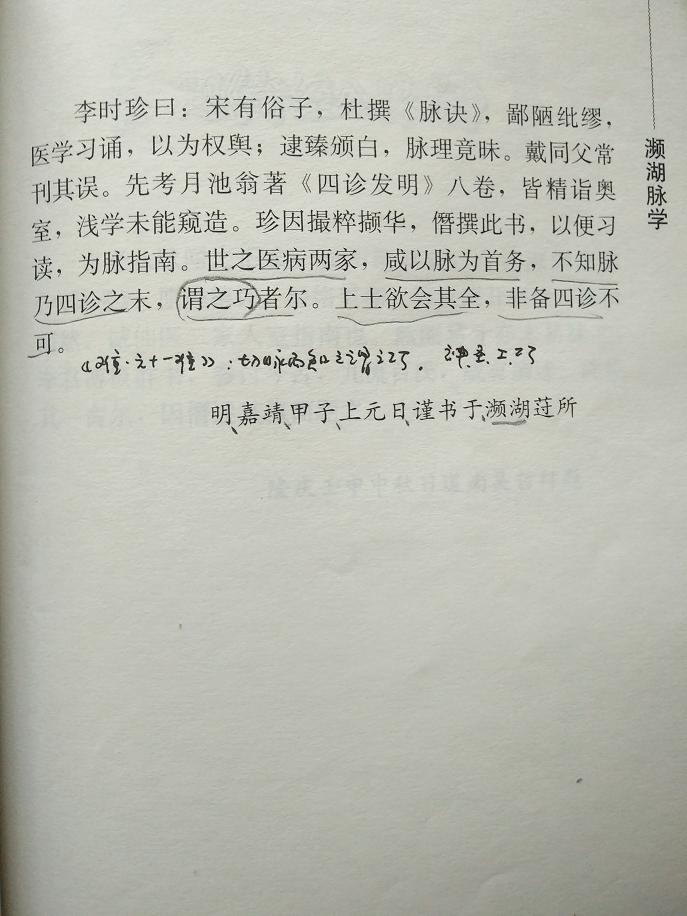 濒湖脉学
李时珍曰：宋有俗子，杜撰《脉诀》，鄙陋纰缪，
医学习诵，以为权舆；逮臻颁白，脉理竟昧。戴同父常
刊其误。先考月池翁著《四诊发明》八卷，皆精诣奥
室，浅学未能窥造。珍因撮粹撷华，僭撰此书，以便习
读，为脉指南。世之医病两家，咸以脉为首务，不知脉
乃四诊之末，谓之巧者尔。上士欲会其全，非备四诊不
可。
《难·六十一难》：切脉而知之谓之巧。神、圣、工、巧
明嘉靖甲子上元日谨书于濒湖薖所